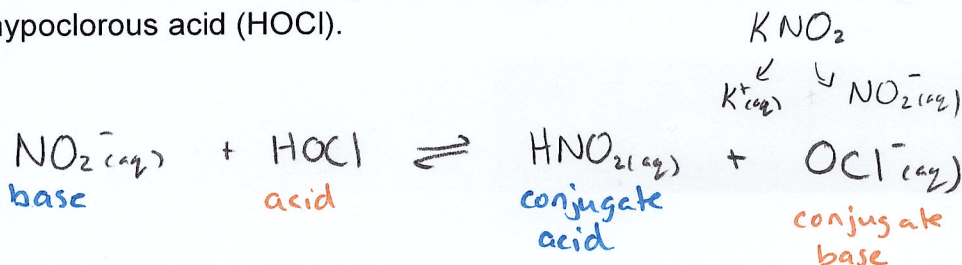 hypoclorous acid (HOCl).
KNO₂
K⁺(aq) NO₂⁻(aq)
NO₂⁻(aq) + HOCl ⇌ HNO₂(aq) + OCl⁻(aq)
base acid conjugate acid conjugate base